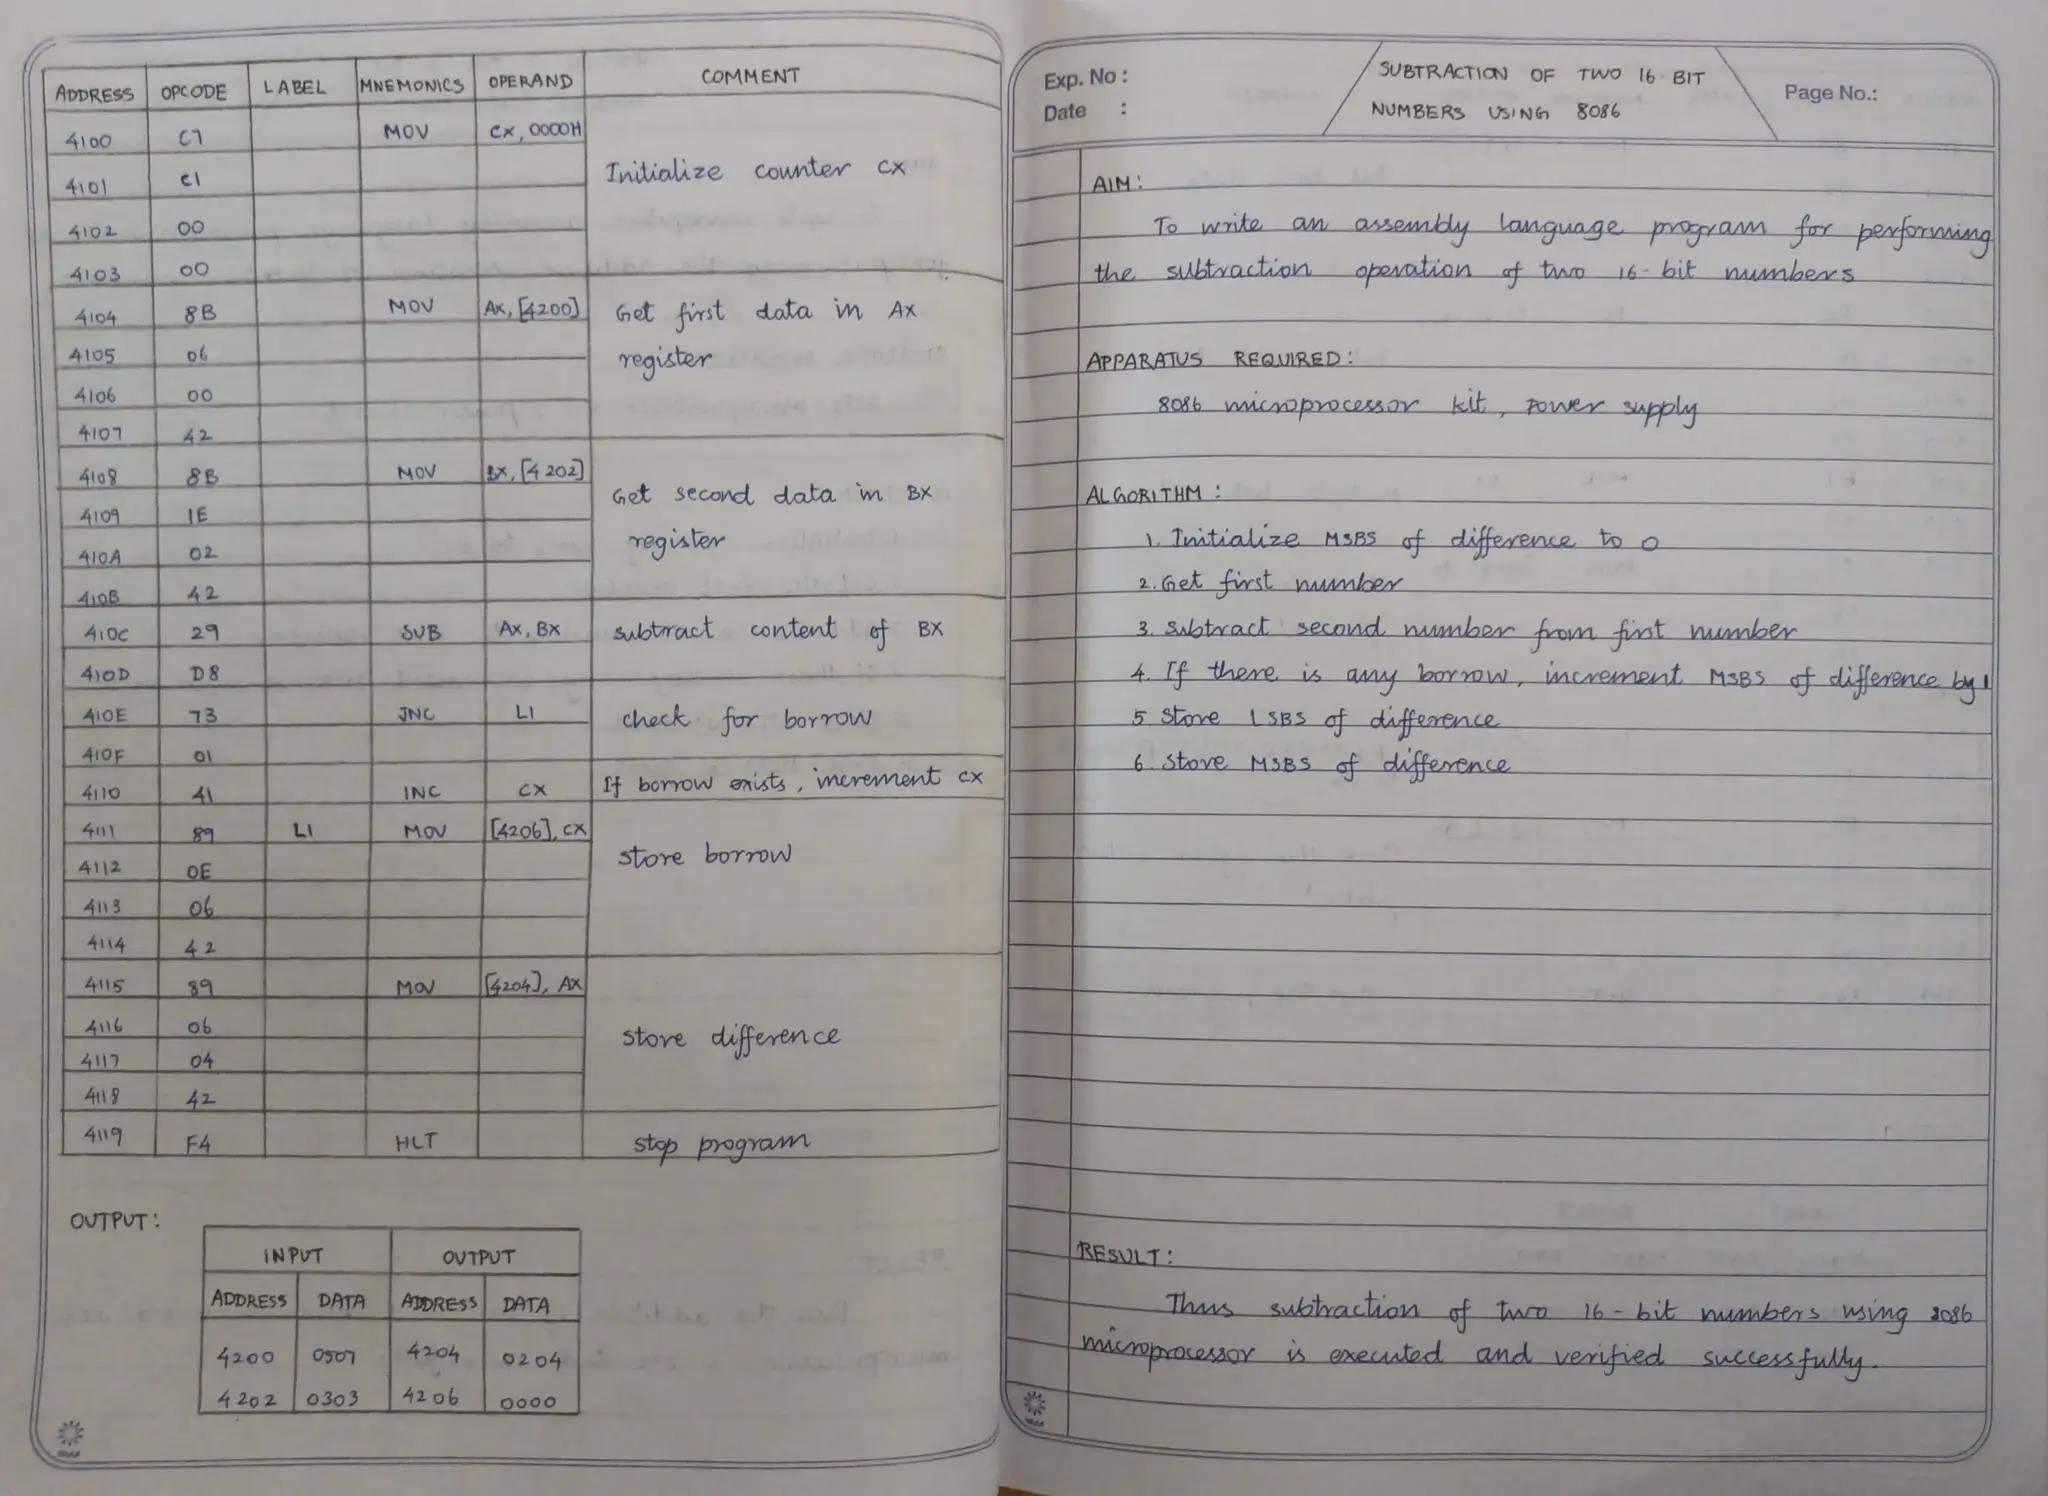 ADDRESS OPCODE LABEL MNEMONICS OPERAND COMMENT
4100 C7 MOV CX, 0000H
4101 C1 Initialize counter CX
4102 00
4103 00
4104 8B MOV AX, [4200] Get first data in AX
4105 06 register
4106 00
4107 42
4108 8B MOV BX, [4202] Get second data in BX
4109 1E
410A 02 register
410B 42
410C 29 SUB AX, BX subtract content of BX
410D D8
410E 73 JNC L1 check for borrow
410F 01
4110 41 INC CX If borrow exists, increment CX
4111 89 L1 MOV [4206], CX
4112 0E store borrow
4113 06
4114 42
4115 89 MOV [4204], AX
4116 06 store difference
4117 04
4118 42
4119 F4 HLT stop program
OUTPUT:
INPUT OUTPUT
ADDRESS DATA ADDRESS DATA
4200 0507 4204 0204
4202 0303 4206 0000
Exp. No :
Date :
SUBTRACTION OF TWO 16-BIT
NUMBERS USING 8086
Page No.:
AIM:
To write an assembly language program for performing
the subtraction operation of two 16-bit numbers
APPARATUS REQUIRED:
8086 microprocessor kit, Power supply
ALGORITHM:
1. Initialize MSBS of difference to 0
2. Get first number
3. Subtract second number from first number
4. If there is any borrow, increment MSBS of difference by 1
5. Store LSBS of difference
6. Store MSBS of difference
RESULT:
Thus subtraction of two 16-bit numbers using 8086
microprocessor is executed and verified successfully.